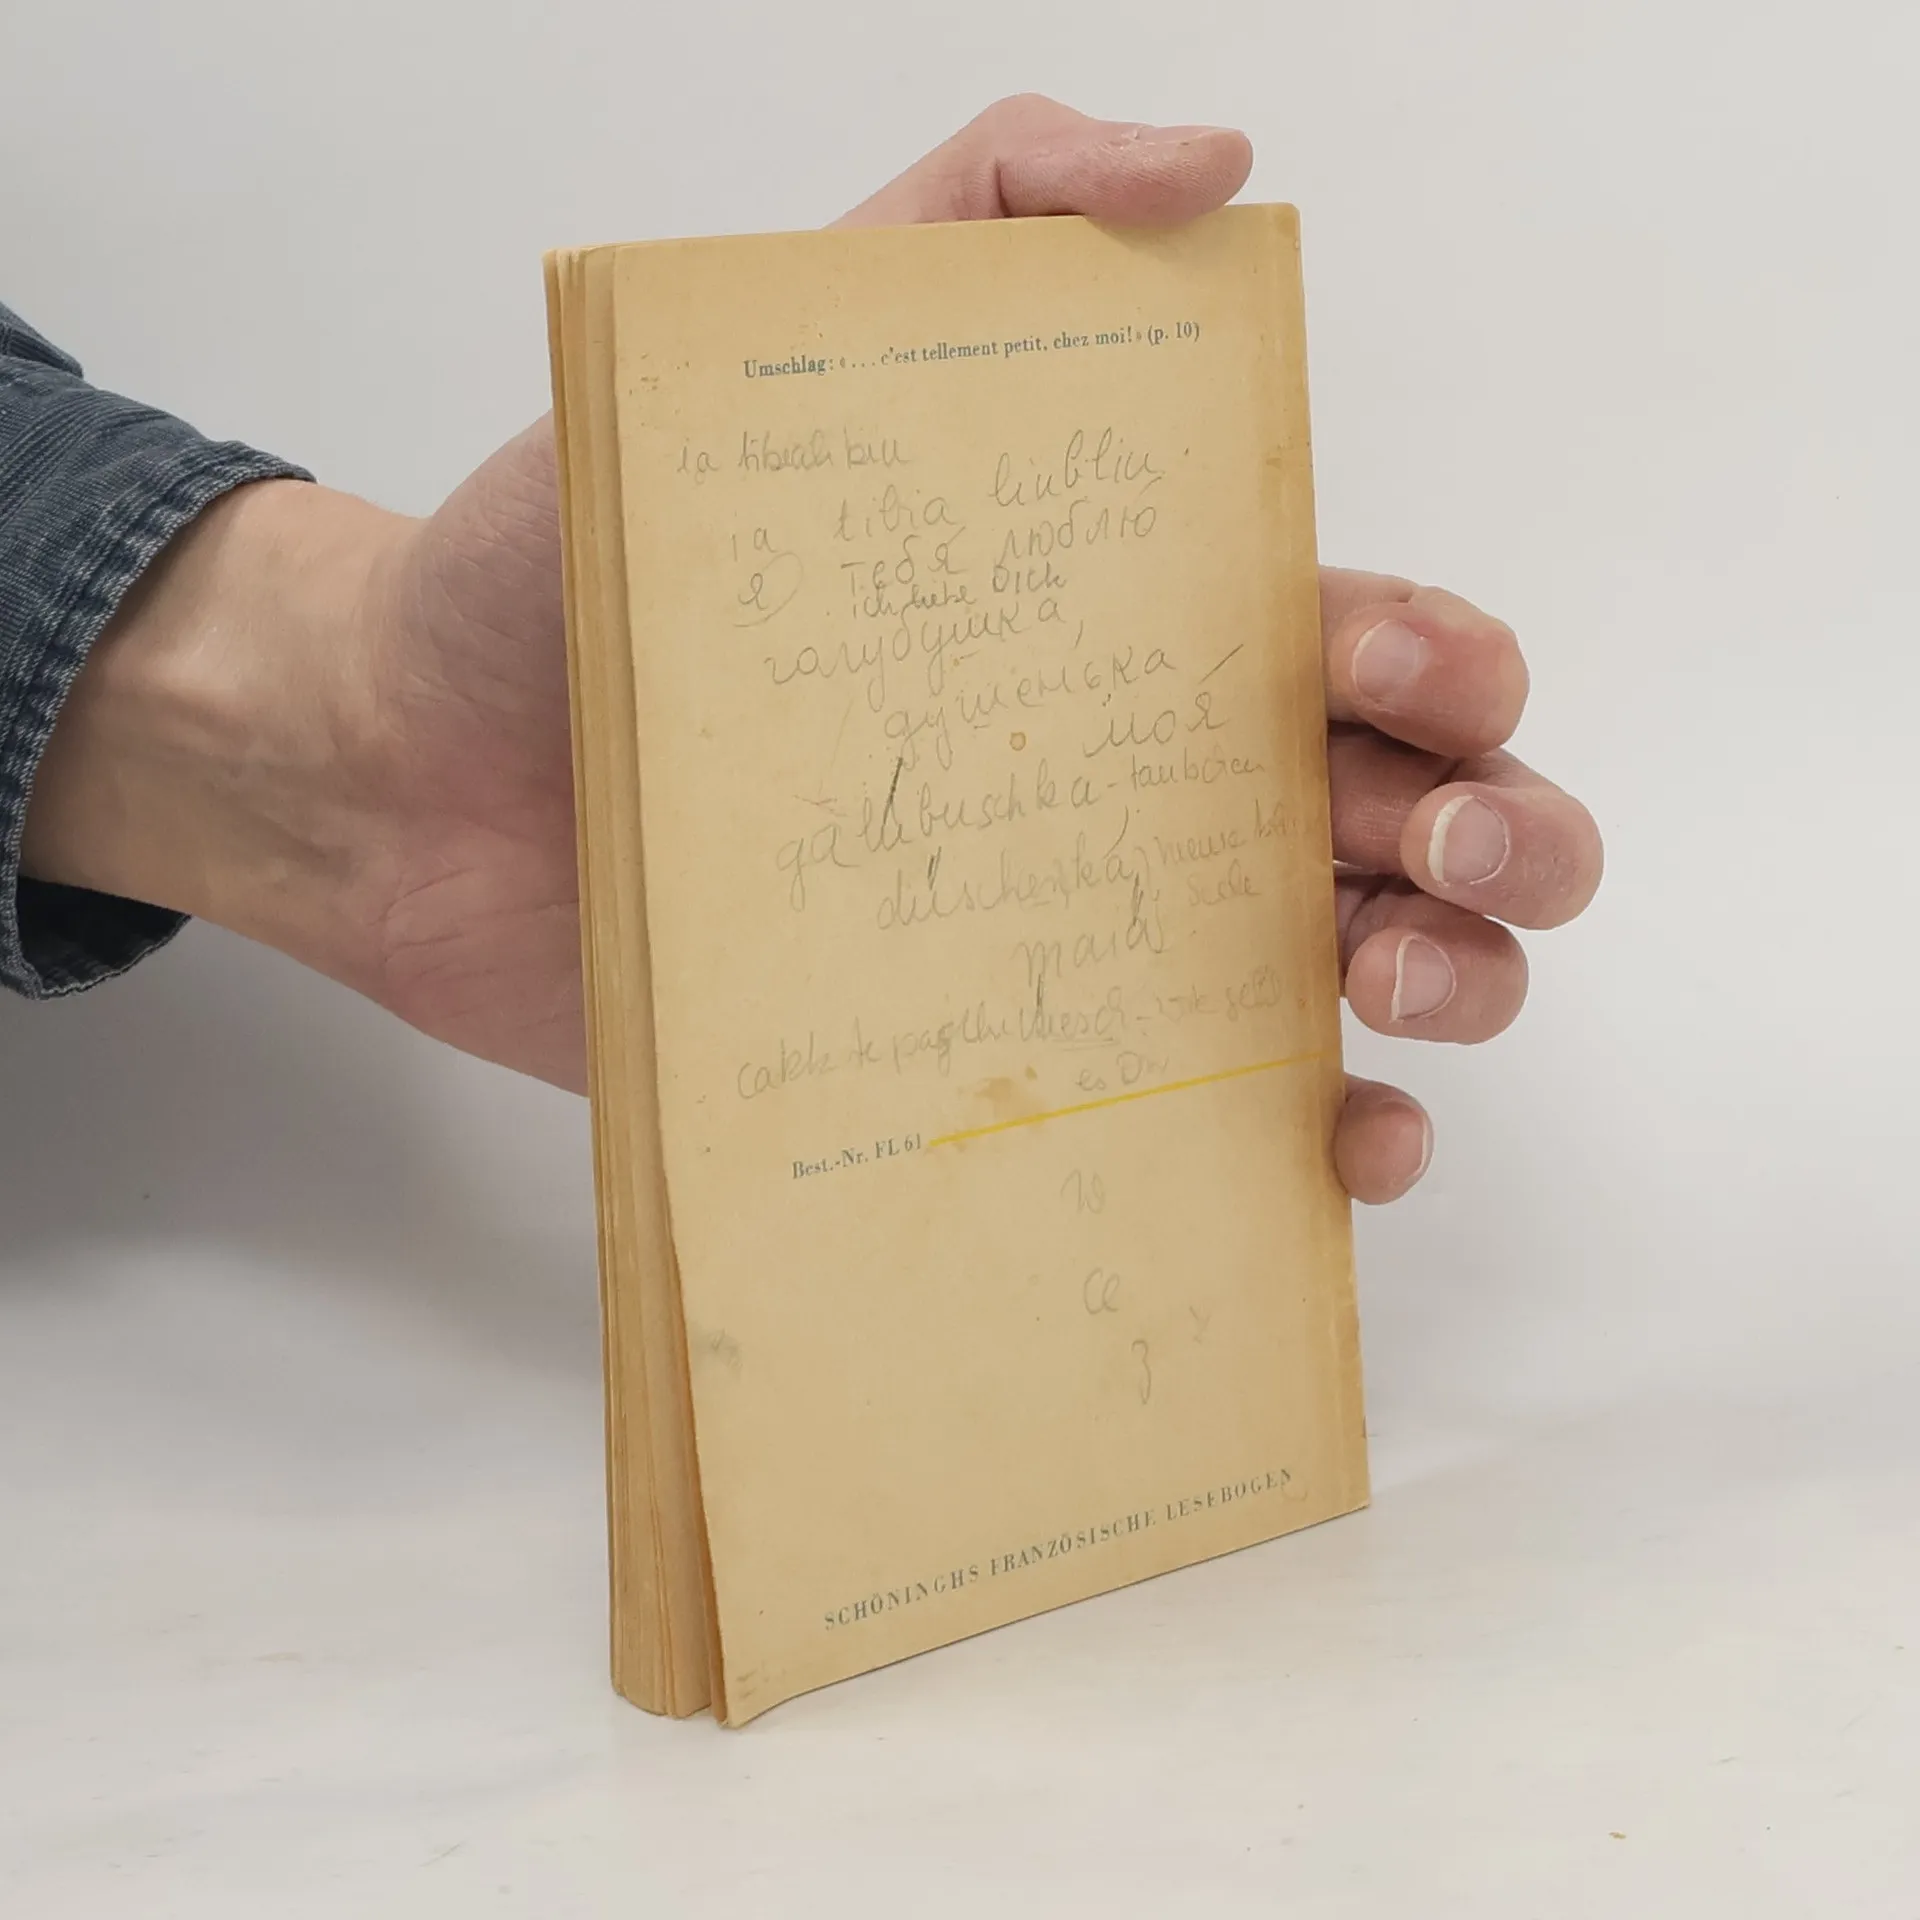 Umschlag: «...c'est tellement petit, chez moi!» (p. 10)
ia
ia tibia liubliu.
я тебя люблю
ich liebe Dich
галубушка,
душенька
моя
galubuschka - täubchen
duschenka, meine
maia Seele
es Du
Best.-Nr. FL 61
w
Ce
z
SCHÖNINGHS FRANZÖSISCHE LESEBOGEN